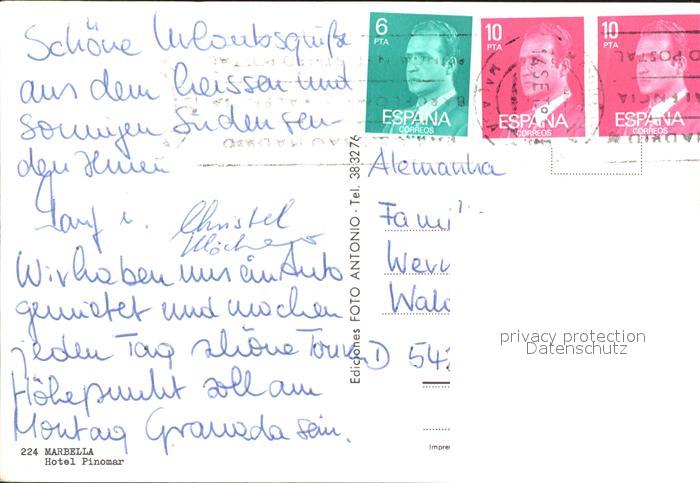 Schöne Urlaubsgrüße
aus dem heissen und
sonnigen Süden sen-
den Ihnen
u. Christel
Wir haben uns ein Auto
gemietet und machen
jeden Tag schöne Touren
Höhepunkt soll am
Montag Granada sein.
224 MARBELLA
Hotel Pinomar
Ediciones FOTO ANTONIO - Tel. 383276
6 PTA
ESPAÑA
CORREOS
10 PTA
ESPAÑA
CORREOS
10 PTA
ESPAÑA
CORREOS
Alemanha
Fami
Wern
Wald
D 543
Impre
privacy protection
Datenschutz